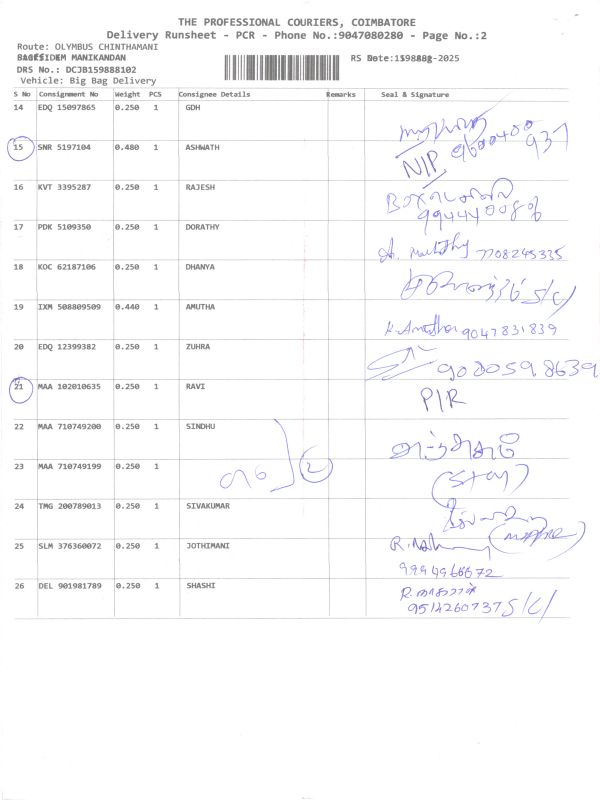 THE PROFESSIONAL COURIERS, COIMBATORE
Delivery Runsheet - PCR - Phone No.:9047080280 - Page No.:2
Route: OLYMBUS CHINTHAMANI
MANIKANDAN
DRS No.: DCJB159888102
Vehicle: Big Bag Delivery
S No Consignment No Weight PCS Consignee Details Remarks Seal & Signature
14 EDQ 15097865 0.250 1 GDH 9600400
937
15 SNR 5197104 0.480 1 ASHWATH N/P
16 KVT 3395287 0.250 1 RAJESH
17 PDK 5109350 0.250 1 DORATHY 7708245335
18 KOC 62187106 0.250 1 DHANYA S/C/
19 IXM 508809509 0.440 1 AMUTHA K. Amutha 9047831839
20 EDQ 12399382 0.250 1 ZUHRA 9080598639
21 MAA 102010635 0.250 1 RAVI P/R
22 MAA 710749200 0.250 1 SINDHU
23 MAA 710749199 0.250 1 2
24 TMG 200789013 0.250 1 SIVAKUMAR
25 SLM 376360072 0.250 1 JOTHIMANI
26 DEL 901981789 0.250 1 SHASHI 9514260737 S/C/